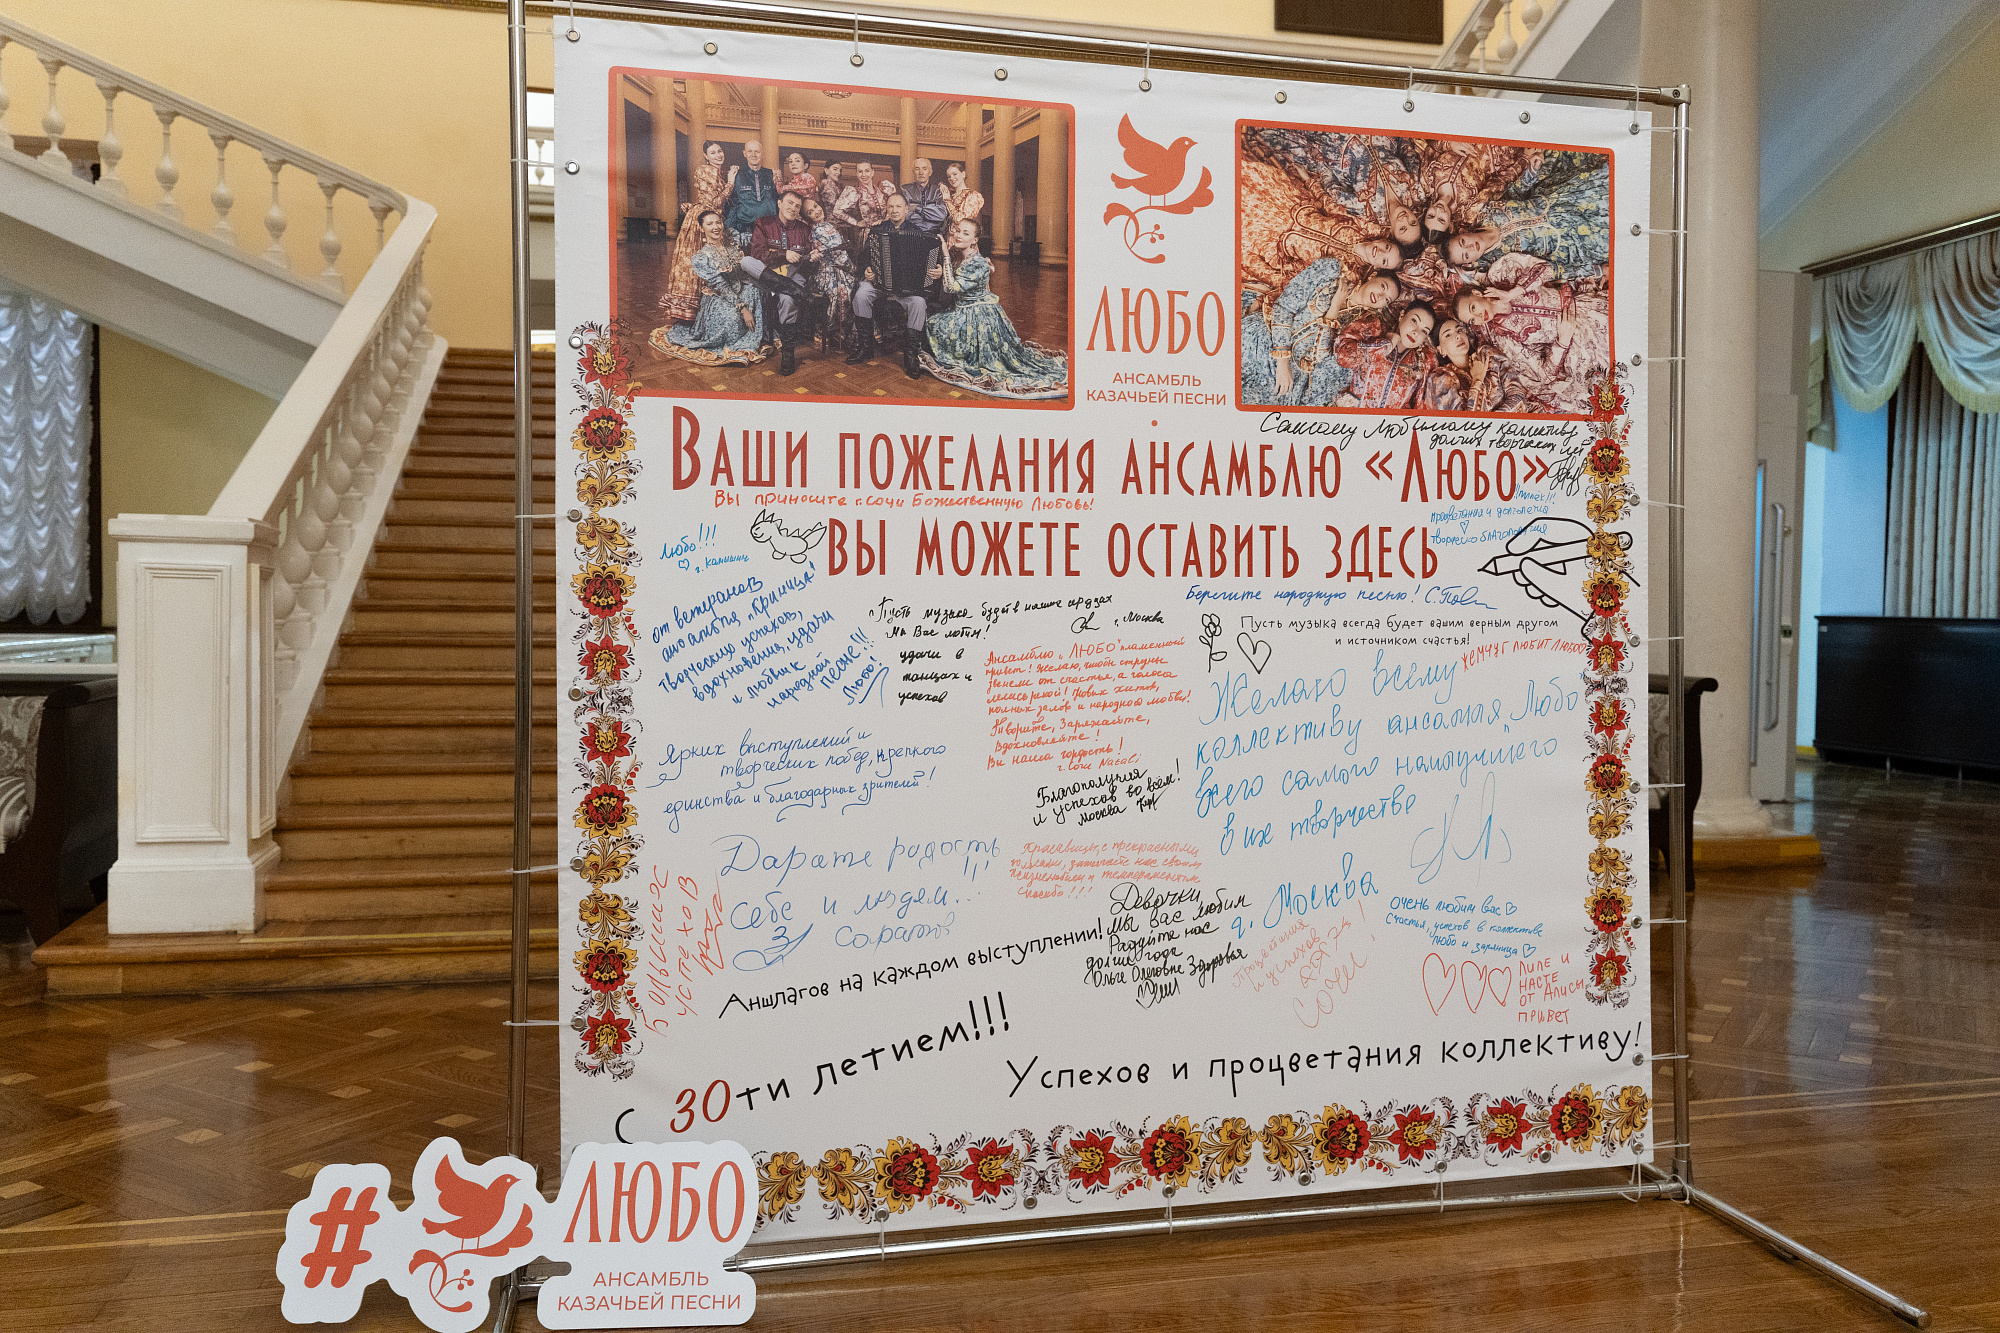 ЛЮБО
АНСАМБЛЬ
КАЗАЧЬЕЙ ПЕСНИ
Самому любимому коллективу
долгих творческих лет
ВАШИ ПОЖЕЛАНИЯ АНСАМБЛЮ «ЛЮБО»
Вы приносите г. Сочи Божественную Любовь!
ВЫ МОЖЕТЕ ОСТАВИТЬ ЗДЕСЬ
процветания и долголетия
творческого благополучия
Любо!!!
г. Камышин
от ветеранов
ансамбля "Криница"!
творческих успехов,
вдохновения, удачи
и любви к
народной
песне!!!
Любо!
Пусть музыка будет в наших сердцах
Мы Вас любим!
г. Москва
удачи в
танцах и
успехов
Берегите народную песню!
Пусть музыка всегда будет вашим верным другом
и источником счастья!
ЖЕМЧУГ ЛЮБИТ ЛЮБО
Ансамблю "ЛЮБО" пламенный
привет! Желаю, чтобы струны
звенели от счастья, а голоса
лились рекой! Новых хитов,
полных залов и народной любви!
Творите, Заряжайте,
Вдохновляйте!
Вы наша гордость!
г. Сочи
Желаю всему
коллективу ансамбля "Любо"
всего самого наилучшего
в их творчестве
г. Москва
Ярких выступлений и
творческих побед, крепкого
единства и благодарных зрителей!
Благополучия
и успехов во всём!
Москва
Дарите радость
себе и людям..!!!
Саратов
Красавицы, с прекрасными
голосами, зажигайте нас своим
позитивом и темпераментом
Спасибо!!!
Больших
успехов
Девочки,
мы вас любим
Радуйте нас
долгие года
Ольге Олеговне Здоровья
Процветания
и успехов
Сочи!
очень любим вас
Счастья, успехов в коллективе
любо и зарница
ЛИПЕ И
НАСТЕ
ОТ АЛИСЫ
ПРИВЕТ
Аншлагов на каждом выступлении!
С 30ти летием!!!
Успехов и процветания коллективу!
# ЛЮБО
АНСАМБЛЬ
КАЗАЧЬЕЙ ПЕСНИ